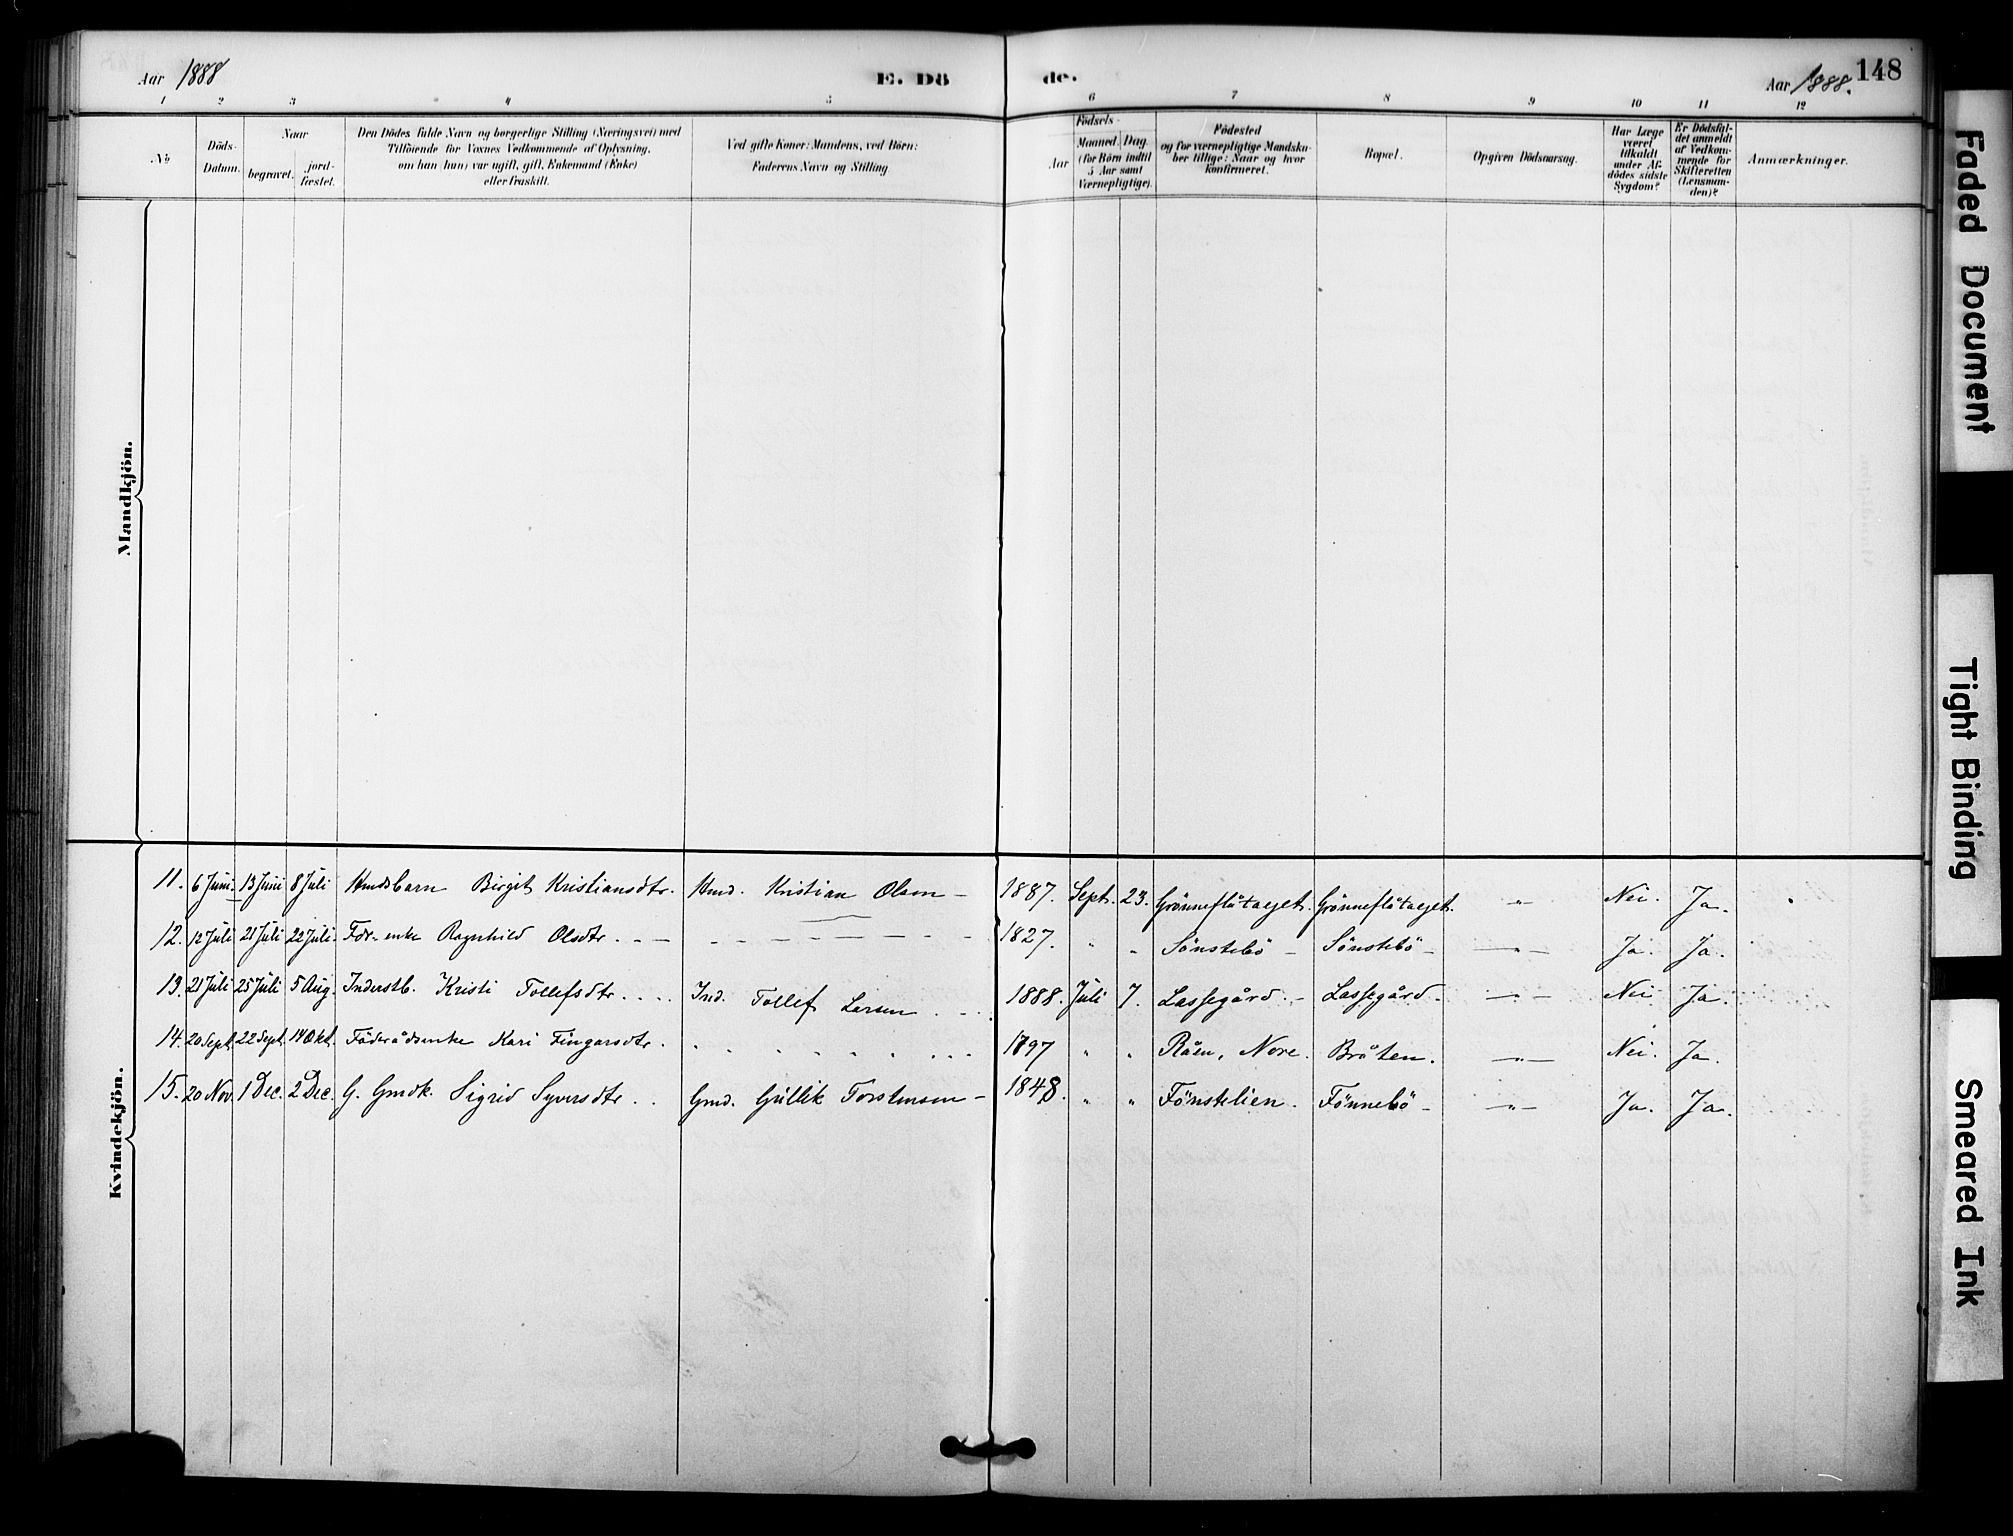 Aar 1888
E. Dö de.
Aar 1888.
148
1 2 3 4 5 6 7 8 9 10 11 12
No
Döds-
Datum.
Naar
begravet.
jord-
fæstet.
Den Dödes fulde Navn og borgerlige Stilling (Næringsvei) med
Tilföiende for Voxnes Vedkommende af Oplysning,
om han (hun) var ugift, gift, Enkemand (Enke)
eller fraskilt.
Ved gifte Koner: Mandens, ved Börn:
Faderens Navn og Stilling
Födsels-
Aar
Maaned. Dag.
(for Börn indtil
5 Aar samt
Værnepligtige).
Födested
og for værnepligtige Mandska-
ber tillige: Naar og hvor
konfirmeret.
Bopæl.
Opgiven Dödsaarsag.
Har Læge
været
tilkaldt
under Af-
dödes sidste
Sygdom?
Er Dödsfal-
det anmeldt
af Vedkom-
mende for
Skifteretten
(Lensman-
den)?
Anmærkninger.
Mandkjön.
Kvindekjön.
11. 6 Juni. 13 Juni 8 Juli Hmdsbarn Birgit Kristiansdtr. Hmd. Kristian Olsen - 1887. Sept. 23. Grönneflåtaeget. Grönneflåtaeget. -"- Nei. Ja.
12. 12 Juli 21 Juli 22 Juli. Före-enke Ragnhild Olsdtr. . - - 1827. " " Sönstebö - Sönstebö - -"- Ja. Ja.
13. 21 Juli 25 Juli 5 Aug. Inderstb. Kristi Tollefsdtr. . . . Ind. Tollef Larsen . - . 1888. Juli 7. Lassegård. - Lassegård. -"- Nei Ja.
14. 20 Sept. 22 Sept. 14 Okt. Föderådsenke Kari Fingarsdtr. 1797 " " Råen, Nore. Bråten. -"- Nei. Ja.
15. 20 Nov. 1 Dec. 2 Dec. G. Gmdk. Sigrid Syversdtr . . Gmd. Gullik Torstensen - 1848. " " Fönstelien. Fönnebö - -"- Ja. Ja.
Faded Document
Tight Binding
Smeared Ink